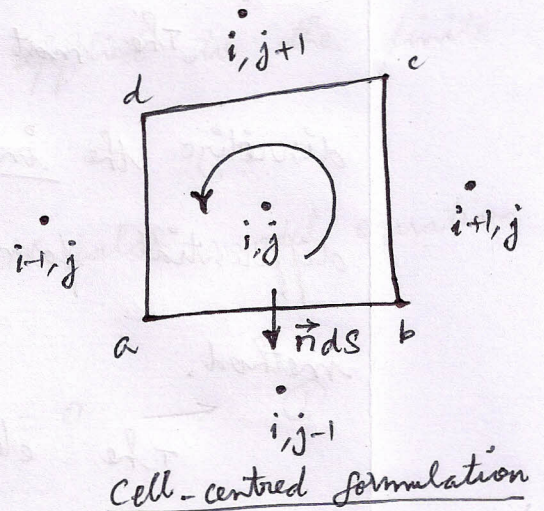 i, j+1
d
c
i, j
i-1, j
i+1, j
a
b
n⃗ dS
i, j-1
Cell-centred formulation